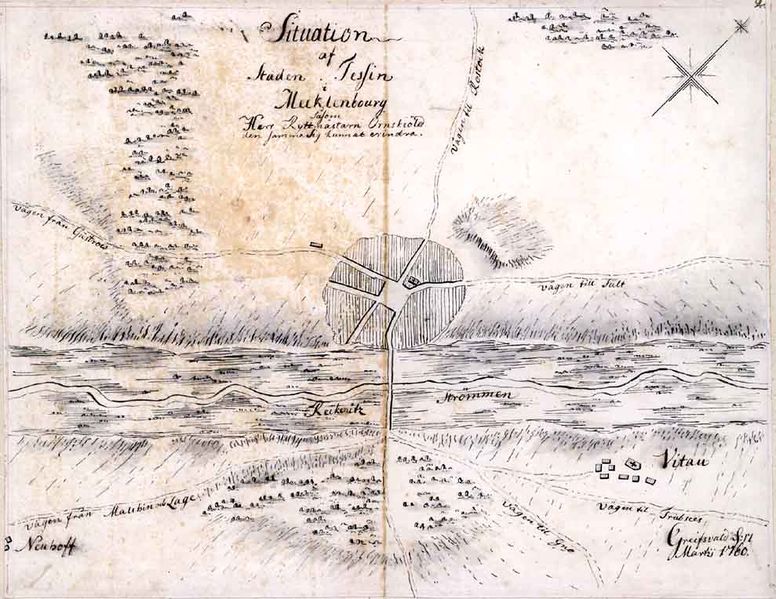 2.
Situation
af
Staden Tessin
i
Mecklenbourg
såsom
Herr Ryttmästarn Örnskiöld
den samma kunnat erindra.
Vägen til Rostock
Vägen från Güstrow
Vägen till Sult
Reckenitz
Strömmen
Vitau
Vägen från Malchin och Lage
Neuhoff
Vägen til
Vägen til Tribsees
Greifsvald d:
Martii 1760.